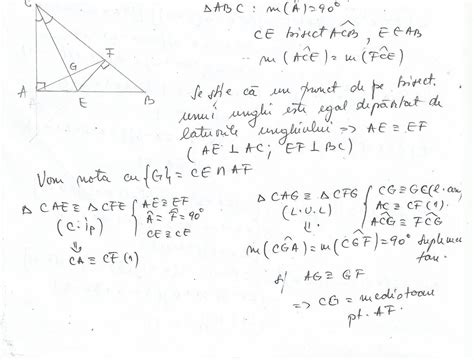 C
F
G
A
E
B
ΔABC : m(Â)=90°
CE bisect ACB, E∈AB
m(ACE) = m(FCE)
Se știe că un punct de pe bisect.
unui unghi este egal depărtat de
laturile unghiului => AE ≡ EF
(AE ⊥ AC; EF ⊥ BC)
Vom nota cu {G} = CE ∩ AF
Δ CAE ≅ Δ CFE
(C. ip)
{ AE ≡ EF
Â = F̂ = 90°
CE ≡ CE
⇓
CA ≡ CF (1)
Δ CAG ≅ Δ CFG
(L.U.L)
{ CG ≡ GC (l. com
AC ≡ CF (1).
ACG ≡ FCG
⇓
m(CGA) = m(CGF) = 90° suplemen
tare.
și AG ≡ GF
=> CG = mediatoare
pt. AF.